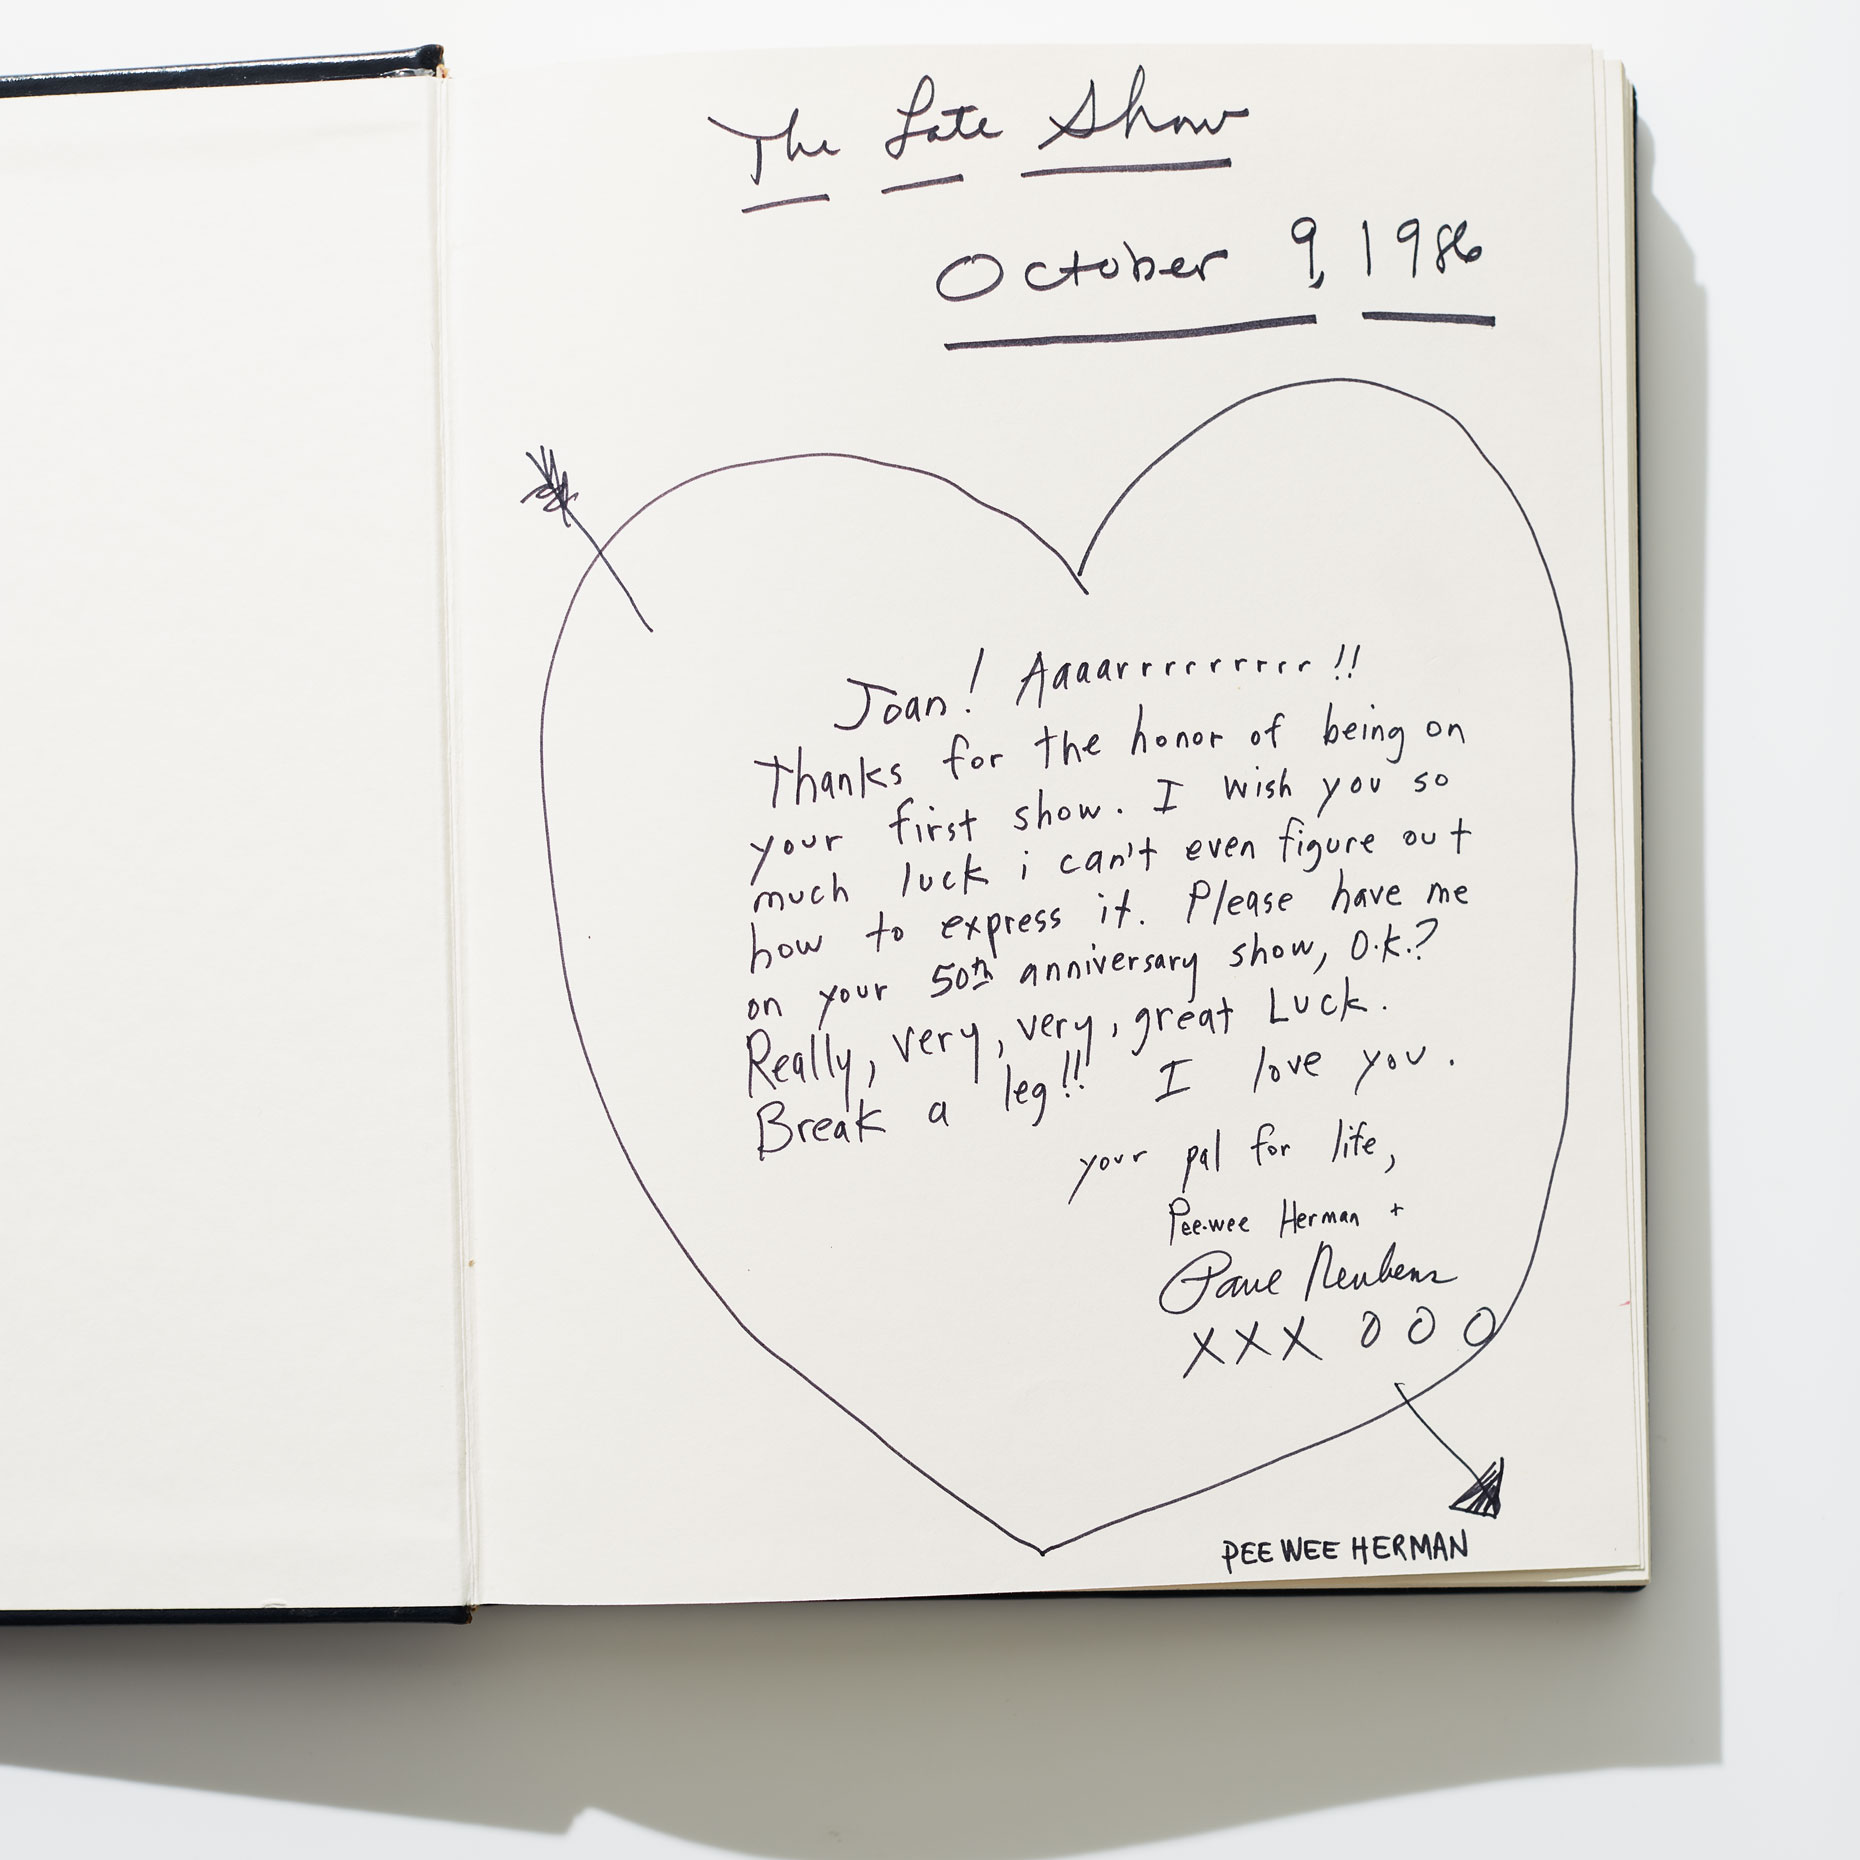 The Late Show
October 9, 1986
Joan! Aaaarrrrrrrrrr!!
Thanks for the honor of being on
your first show. I wish you so
much luck i can't even figure out
how to express it. Please have me
on your 50th anniversary show, O.K.?
Really, very, very, great Luck.
Break a leg!! I love you.
your pal for life,
Pee-wee Herman +
Paul Reubens
XXX OOO
PEE WEE HERMAN